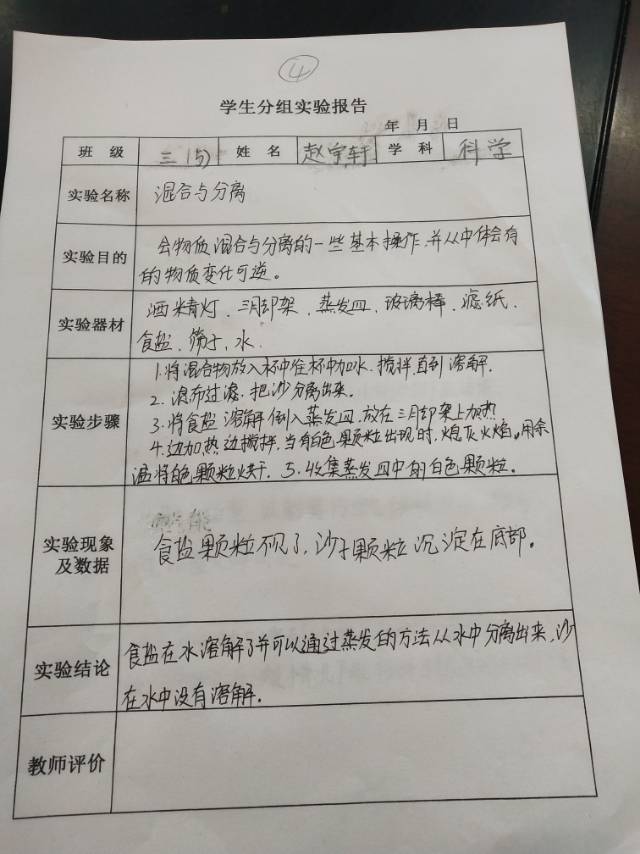 ④
学生分组实验报告
年 月 日
班 级 三(5) 姓 名 赵宇轩 学 科 科学
实验名称 混合与分离
实验目的 会物质混合与分离的一些基本操作,并从中体会有
的物质变化可逆。
实验器材 酒精灯、三月却架、蒸发皿、玻璃棒、滤纸、
食盐、筛子、水
实验步骤 1.将混合物放入杯中往杯中加水、搅拌直到溶解.
2.滤布过滤.把沙分离出来。
3.将食盐溶解倒入蒸发皿.放在三月却架上加热
4.边加热边搅拌.当有白色颗粒出现时,熄灭火焰。用余
温将白色颗粒烘干. 5.收集蒸发皿中的白色颗粒。
实验现象
及数据 食盐颗粒不见了,沙子颗粒沉淀在底部。
实验结论 食盐在水溶解了并可以通过蒸发的方法从水中分离出来,沙
在水中没有溶解.
教师评价